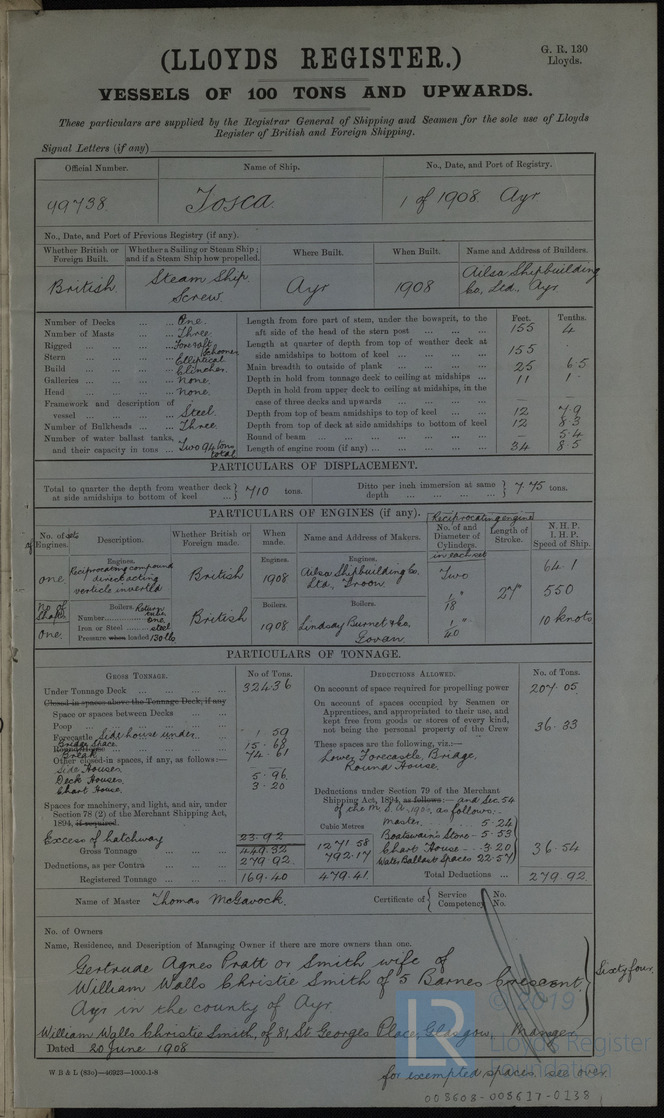 (LLOYDS REGISTER.)
G. R. 130
Lloyds.
VESSELS OF 100 TONS AND UPWARDS.
These particulars are supplied by the Registrar General of Shipping and Seamen for the sole use of Lloyds
Register of British and Foreign Shipping.
Signal Letters (if any)
Official Number. Name of Ship. No., Date, and Port of Registry.
99738. Tosca. 1 of 1908. Ayr
No., Date, and Port of Previous Registry (if any).
Whether British or Foreign Built. Whether a Sailing or Steam Ship; and if a Steam Ship how propelled. Where Built. When Built. Name and Address of Builders.
British Steam Ship Screw. Ayr 1908 Ailsa Shipbuilding Co. Ltd. Ayr
Number of Decks ... ... One.
Number of Masts ... Three.
Rigged ... ... Fore & aft Schooner
Stern ... ... Elliptical
Build ... ... Clincher.
Galleries ... ... None.
Head ... ... None.
Framework and description of
vessel ... ... Steel.
Number of Bulkheads ... Three.
Number of water ballast tanks,
and their capacity in tons ... Two 94 tons total
Feet. Tenths.
Length from fore part of stem, under the bowsprit, to the
aft side of the head of the stern post ... 155 4
Length at quarter of depth from top of weather deck at
side amidships to bottom of keel ... 155
Main breadth to outside of plank ... 25 6.5
Depth in hold from tonnage deck to ceiling at midships ... 11 1.
Depth in hold from upper deck to ceiling at midships, in the
case of three decks and upwards ... — —
Depth from top of beam amidships to top of keel ... 12 7.9
Depth from top of deck at side amidships to bottom of keel 12 8.3
Round of beam ... — 5.4
Length of engine room (if any) ... 34 8.5
PARTICULARS OF DISPLACEMENT.
Total to quarter the depth from weather deck at side amidships to bottom of keel ... 710 tons. Ditto per inch immersion at same depth ... 7.75 tons.
PARTICULARS OF ENGINES (if any).
Reciprocating engine
No. of sets of Engines. Description. Whether British or Foreign made. When made. Name and Address of Makers. No. of and Diameter of Cylinders. in each set Length of Stroke. N. H. P. I. H. P. Speed of Ship.
Engines. Engines. Engines.
one Reciprocating compound direct acting verticle inverted British 1908 Ailsa Shipbuilding Co. Ltd., Troon. Two 27" 64.1
550
10 knots
No. of Shafts Boilers. Boilers. Boilers.
One. Number Return tube one
Iron or Steel steel
Pressure when loaded 130 lb
British 1908 Lindsay Burnet & Co. Govan 1," 18 1," 40
PARTICULARS OF TONNAGE.
GROSS TONNAGE. No. of Tons. DEDUCTIONS ALLOWED. No. of Tons.
Under Tonnage Deck ... 324.36
Closed-in spaces above the Tonnage Deck, if any
Space or spaces between Decks ...
Poop ...
Forecastle Side house under. 1.59
Bridge Space 15.68
Break 74.61
Other closed-in spaces, if any, as follows:—
Side Houses
Deck Houses. 5.96
Chart House. 3.20
Spaces for machinery, and light, and air, under
Section 78 (2) of the Merchant Shipping Act,
1894, if required.
Excess of hatchway 23.92
Gross Tonnage 449.32
Deductions, as per Contra ... 279.92
Registered Tonnage ... 169.40
Cubic Metres
1271.58
792.17
479.41
On account of space required for propelling power 207.05
On account of spaces occupied by Seamen or
Apprentices, and appropriated to their use, and
kept free from goods or stores of every kind,
not being the personal property of the Crew 36.33
These spaces are the following, viz.:—
Lower Forecastle, Bridge, Round House.
Deductions under Section 79 of the Merchant
Shipping Act, 1894, as follows:— and Sec. 54
of the M.S.A. 1906, as follows:-
Master. 5.24
Boatswain's Store - 5.53
Chart House - 3.20
Water Ballast Spaces 22.57
36.54
Total Deductions ... 279.92
Name of Master Thomas McGavock.
Certificate of Service No.
Competency No.
No. of Owners
Name, Residence, and Description of Managing Owner if there are more owners than one.
Gertrude Agnes Pratt or Smith wife of
William Walls Christie Smith of 5 Barnes Crescent,
Ayr in the county of Ayr.
Sixty four.
William Walls Christie Smith, of 81, St. Georges Place, Glasgow, Manager
Dated 20 June 1908
W B & L (83o)—46923—1000-1-8
for exempted spaces, see over.
LR © 2019
Lloyds Register
Foundation
008608-008617-0138